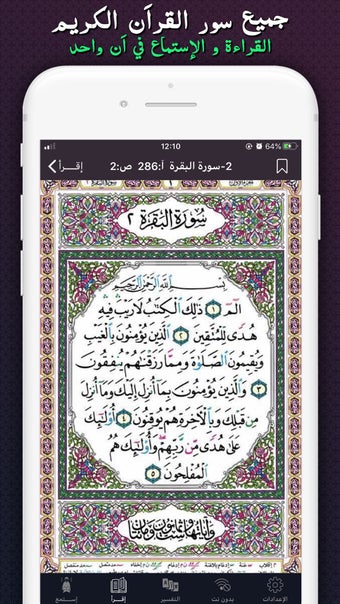 جميع سور القرآن الكريم
القراءة و الإستماع في آن واحد
12:10
64%
2-سورة البقرة آ:286 ص:2
إقــرأ
سُورَةُ الْبَقَرَةِ ٢
بِسْمِ اللَّهِ الرَّحْمَٰنِ الرَّحِيمِ
الٓمٓ ١ ذَٰلِكَ الْكِتَٰبُ لَا رَيْبَ فِيهِ
هُدًى لِّلْمُتَّقِينَ ٢ الَّذِينَ يُؤْمِنُونَ بِالْغَيْبِ
وَيُقِيمُونَ الصَّلَوٰةَ وَمِمَّا رَزَقْنَٰهُمْ يُنفِقُونَ
٣ وَالَّذِينَ يُؤْمِنُونَ بِمَا أُنزِلَ إِلَيْكَ وَمَا أُنزِلَ
مِن قَبْلِكَ وَبِالْآخِرَةِ هُمْ يُوقِنُونَ ٤ أُولَٰئِكَ
عَلَىٰ هُدًى مِّن رَّبِّهِمْ وَأُولَٰئِكَ هُمُ
الْمُفْلِحُونَ ٥
وآياتها ست وثمانون ومائتان
إستمع
إقرأ
التفسير
بدون نت
الإعدادات